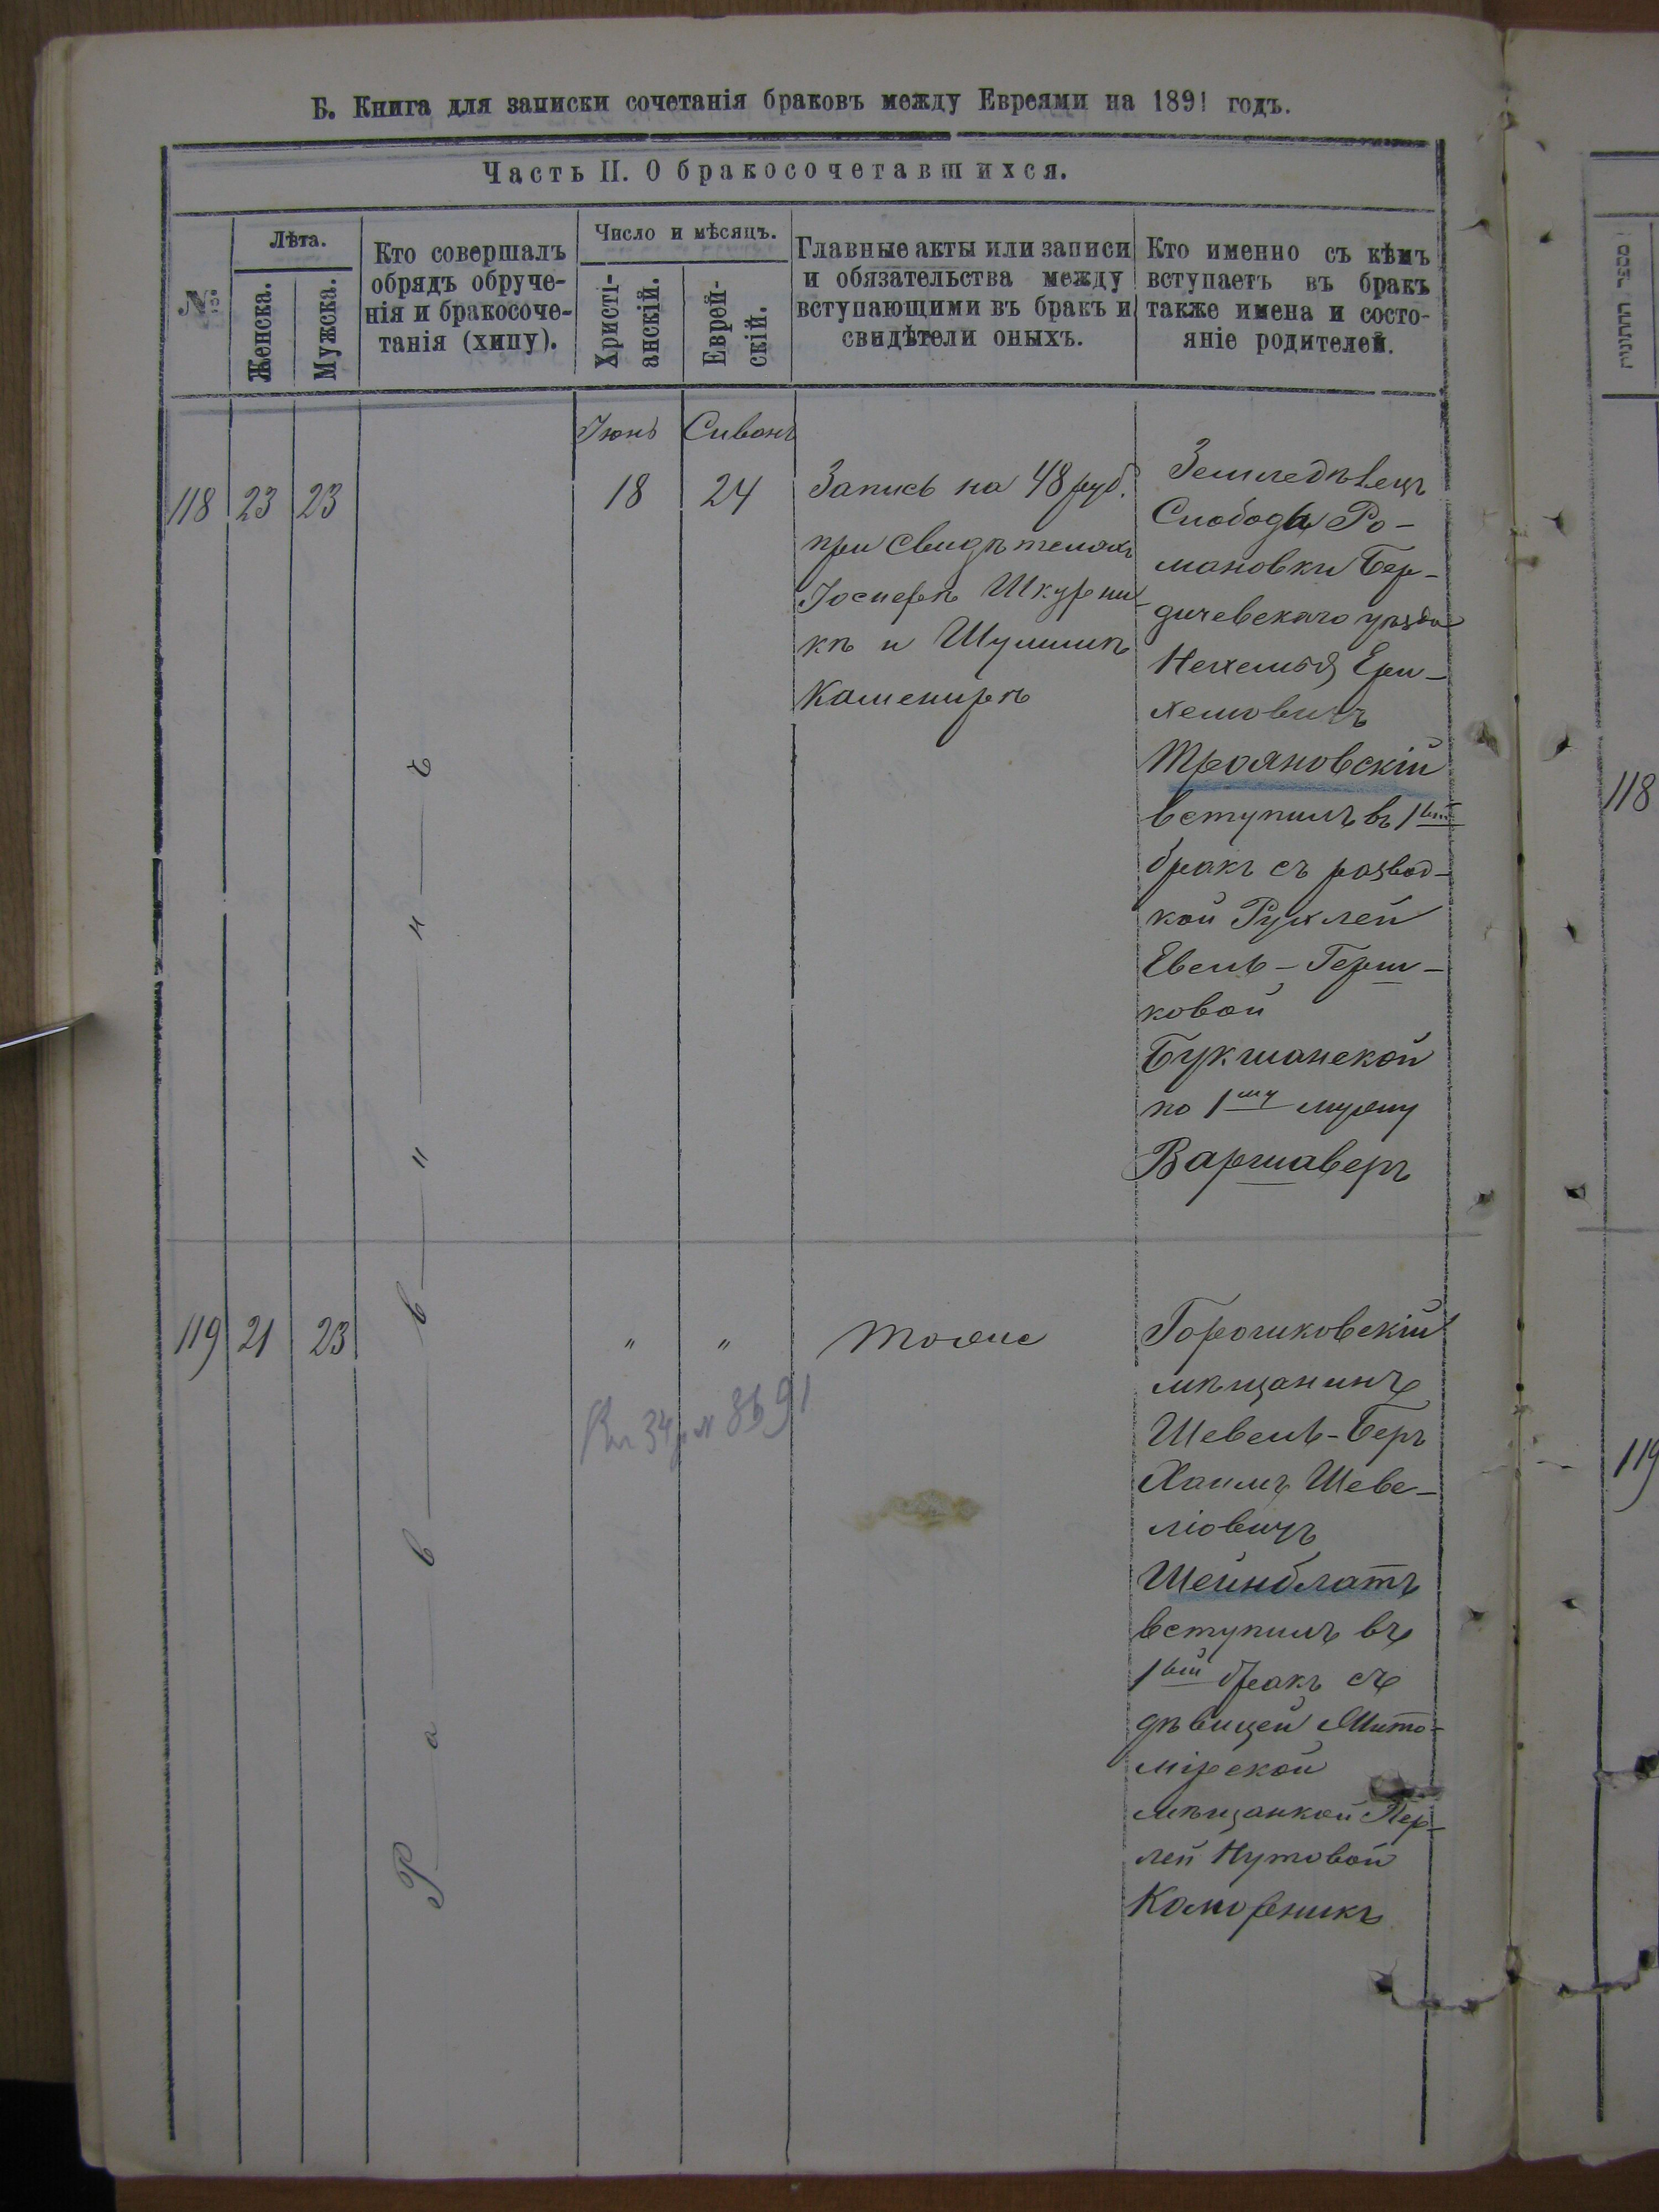 Б. Книга для записки сочетанія браковъ между Евреями на 1891 годъ.
Часть II. О бракосочетавшихся.
№
Лѣта.
Женска.
Мужска.
Кто совершалъ
обрядъ обруче-
нія и бракосоче-
танія (хипу).
Число и мѣсяцъ.
Христі-
анскій.
Еврей-
скій.
Главные акты или записи
и обязательства между
вступающими въ бракъ и
свидѣтели оныхъ.
Кто именно съ кѣмъ
вступаетъ въ бракъ
также имена и состо-
яніе родителей.
Раввинъ
Іюнь
Сиванъ
118
23
23
18
24
Запись на 48 руб.
при свидѣтеляхъ
Іосиферѣ Шкурни-
кѣ и Шулимѣ
Кашепирѣ
Земледѣлецъ
Слободы Ро-
мановки Бер-
дичевскаго уѣзда
Нехемья Ери-
хемовичъ
Трояновскій
вступилъ въ 1вый
бракъ съ развод-
кой Рухлей
Евель-Герш-
ковой
Букшанской
по 1му мужу
Варшаверъ
119
21
23
"
"
тоже
Горошковскій
мѣщанинъ
Шевель-Беръ
Хаимъ Шеве-
ліовичъ
Шейнблатъ
вступилъ въ
1вый бракъ съ
дѣвицей Жито-
мірской
мѣщанкой Пер-
лей Нутовой
Коморникъ
118
119